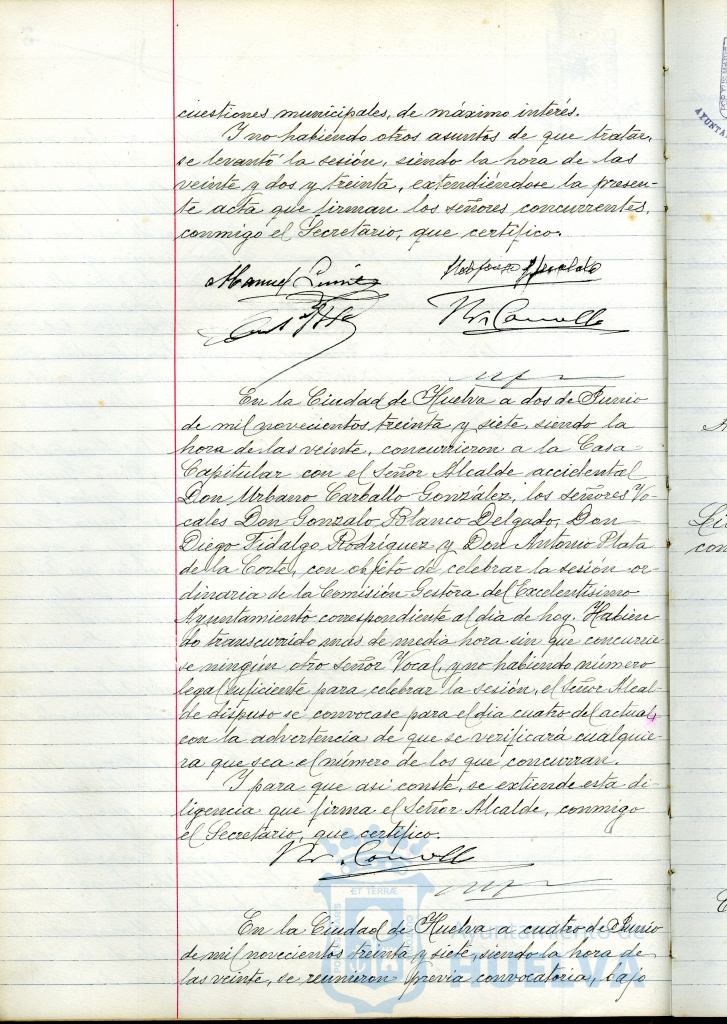 cuestiones municipales, de máximo interés.
Y no habiendo otros asuntos de que tratar,
se levantó la sesión, siendo la hora de las
veinte y dos y treinta, extendiéndose la presen-
te acta que firman los señores concurrentes,
conmigo el Secretario, que certifico.
Manuel
En la Ciudad de Huelva a dos de Junio
de mil novecientos treinta y siete, siendo la
hora de las veinte, concurrieron a la Casa
Capitular con el Señor Alcalde accidental
Don Urbano Carballo González, los señores Vo-
cales Don Gonzalo Polanco Delgado, Don
Diego Fidalgo Rodríguez y Don Antonio Plata
de la Corte, con objeto de celebrar la sesión or-
dinaria de la Comisión Gestora del Excelentísimo
Ayuntamiento correspondiente al día de hoy. Habien-
do transcurrido más de media hora sin que concurrie-
se ningún otro Señor Vocal, y no habiendo número
legal suficiente para celebrar la sesión, el Señor Alcal-
de dispuso se convocase para el día cuatro del actual,
con la advertencia de que se verificará cualquie-
ra que sea el número de los que concurran.
Y para que así conste, se extiende esta di-
ligencia que firma el Señor Alcalde, conmigo
el Secretario, que certifico.
ET TERRÆ
En la Ciudad de Huelva a cuatro de Junio
de mil novecientos treinta y siete, siendo la hora de
las veinte, se reunieron previa convocatoria, bajo